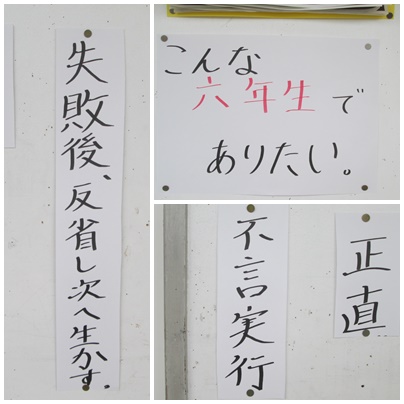 失敗後、反省し次へ生かす。
こんな
六年生で
ありたい。
不言実行
正直